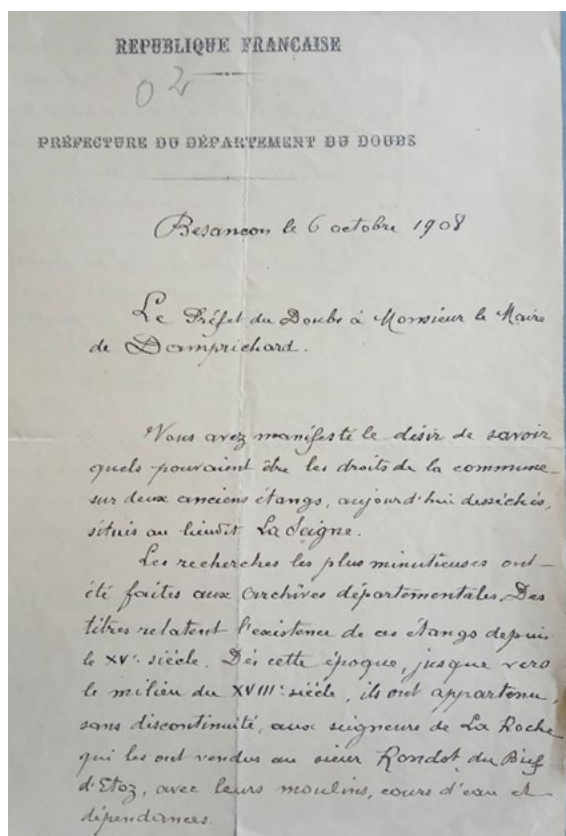 REPUBLIQUE FRANÇAISE
02
PRÉFECTURE DU DÉPARTEMENT DU DOUBS
Besançon le 6 octobre 1908
Le Préfet du Doubs à Monsieur le Maire
de Damprichard.
Vous avez manifesté le désir de savoir
quels pouvaient être les droits de la commune
sur deux anciens étangs, aujourd'hui desséchés,
situés au lieudit La Seigne.
Les recherches les plus minutieuses ont
été faites aux archives départementales. Des
titres relatent l'existence de ces étangs depuis
le XVe siècle. Dès cette époque, jusque vers
le milieu du XVIIIe siècle, ils ont appartenu,
sans discontinuité, aux seigneurs de La Roche
qui les ont vendus au sieur Rondot du Bief
d'Etoz, avec leurs moulins, cours d'eau et
dépendances.